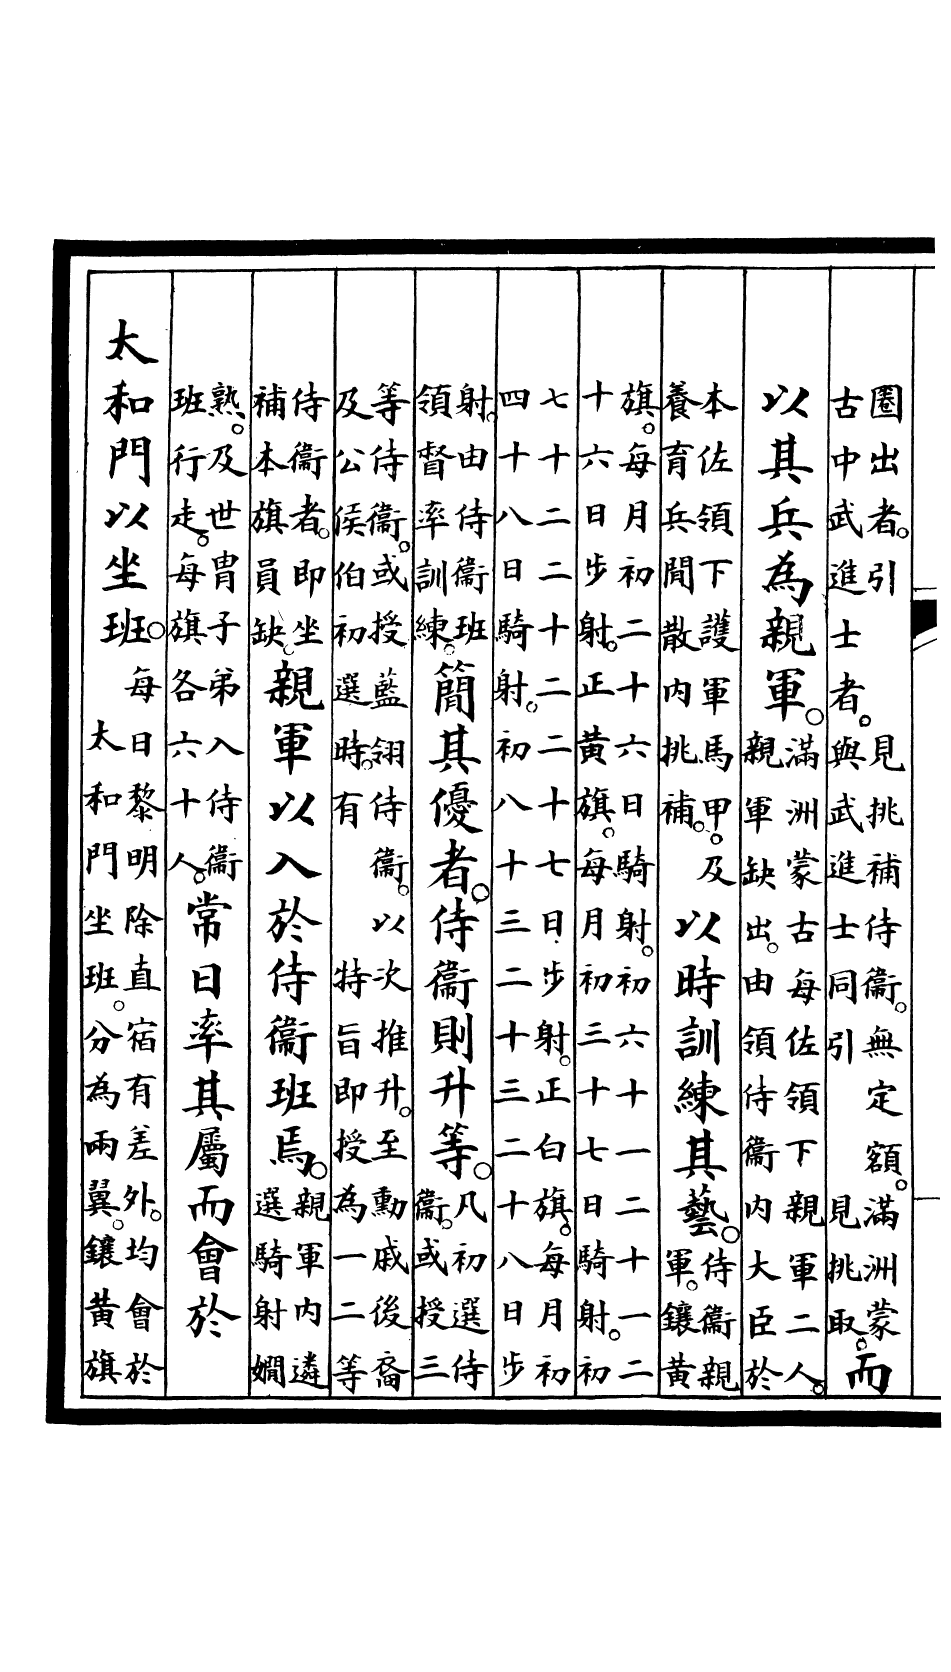 圈出者。引見挑補侍衛。無定額。滿洲蒙
古中武進士者。與武進士同引見挑取。而
以其兵為親軍。
滿洲蒙古每佐領下親軍二人。
親軍缺出。由領侍衛内大臣於
本佐領下護軍馬甲。及
養育兵閒散内挑補。
以時訓練其藝。
侍衛親
軍。鑲黃
旗。每月初二十六日騎射。初六十一二十一二
十六日步射。正黃旗。每月初三十七日騎射。初
七十二二十二二十七日步射。正白旗。每月初
四十八日騎射。初八十三二十三二十八日步
射。由侍衛班
領督率訓練。
簡其優者。侍衛則升等。
凡初選侍
衛。或授三
等侍衛。或授藍翎侍衛。以次推升。至勳戚後裔
及公侯伯初選時。有特旨即授為一二等
侍衛者。即坐
補本旗員缺。
親軍以入於侍衛班焉。
親軍内遴
選騎射嫺
熟。及世胄子弟入侍衛
班行走。每旗各六十人。
常日率其屬而會於
太和門以坐班。
每日黎明除直宿有差外。均會於
太和門坐班。分為兩翼。鑲黃旗